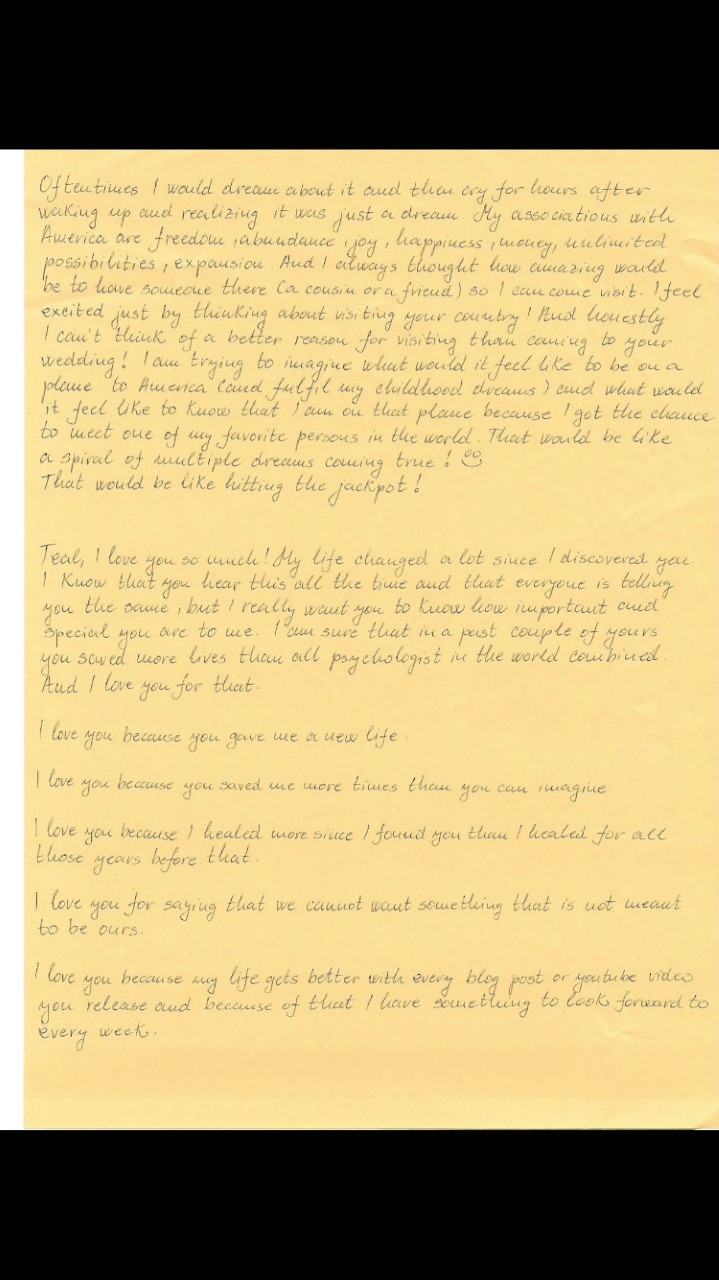 Oftentimes I would dream about it and then cry for hours after
waking up and realizing it was just a dream. My associations with
America are freedom, abundance, joy, happiness, money, unlimited
possibilities, expansion. And I always thought how amazing would
be to have someone there (a cousin or a friend) so I can come visit. I feel
excited just by thinking about visiting your country! And honestly
I can't think of a better reason for visiting than coming to your
wedding! I am trying to imagine what would it feel like to be on a
plane to America (and fulfil my childhood dreams) and what would
it feel like to know that I am on that plane because I got the chance
to meet one of my favorite persons in the world. That would be like
a spiral of multiple dreams coming true! ☺
That would be like hitting the jackpot!
Teal, I love you so much! My life changed a lot since I discovered you.
I know that you hear this all the time and that everyone is telling
you the same, but I really want you to know how important and
special you are to me. I am sure that in a past couple of yours
you saved more lives than all psychologist in the world combined.
And I love you for that.
I love you because you gave me a new life.
I love you because you saved me more times than you can imagine
I love you because I healed more since I found you than I healed for all
those years before that.
I love you for saying that we cannot want something that is not meant
to be ours.
I love you because my life gets better with every blog post or youtube video
you release and because of that I have something to look forward to
every week.